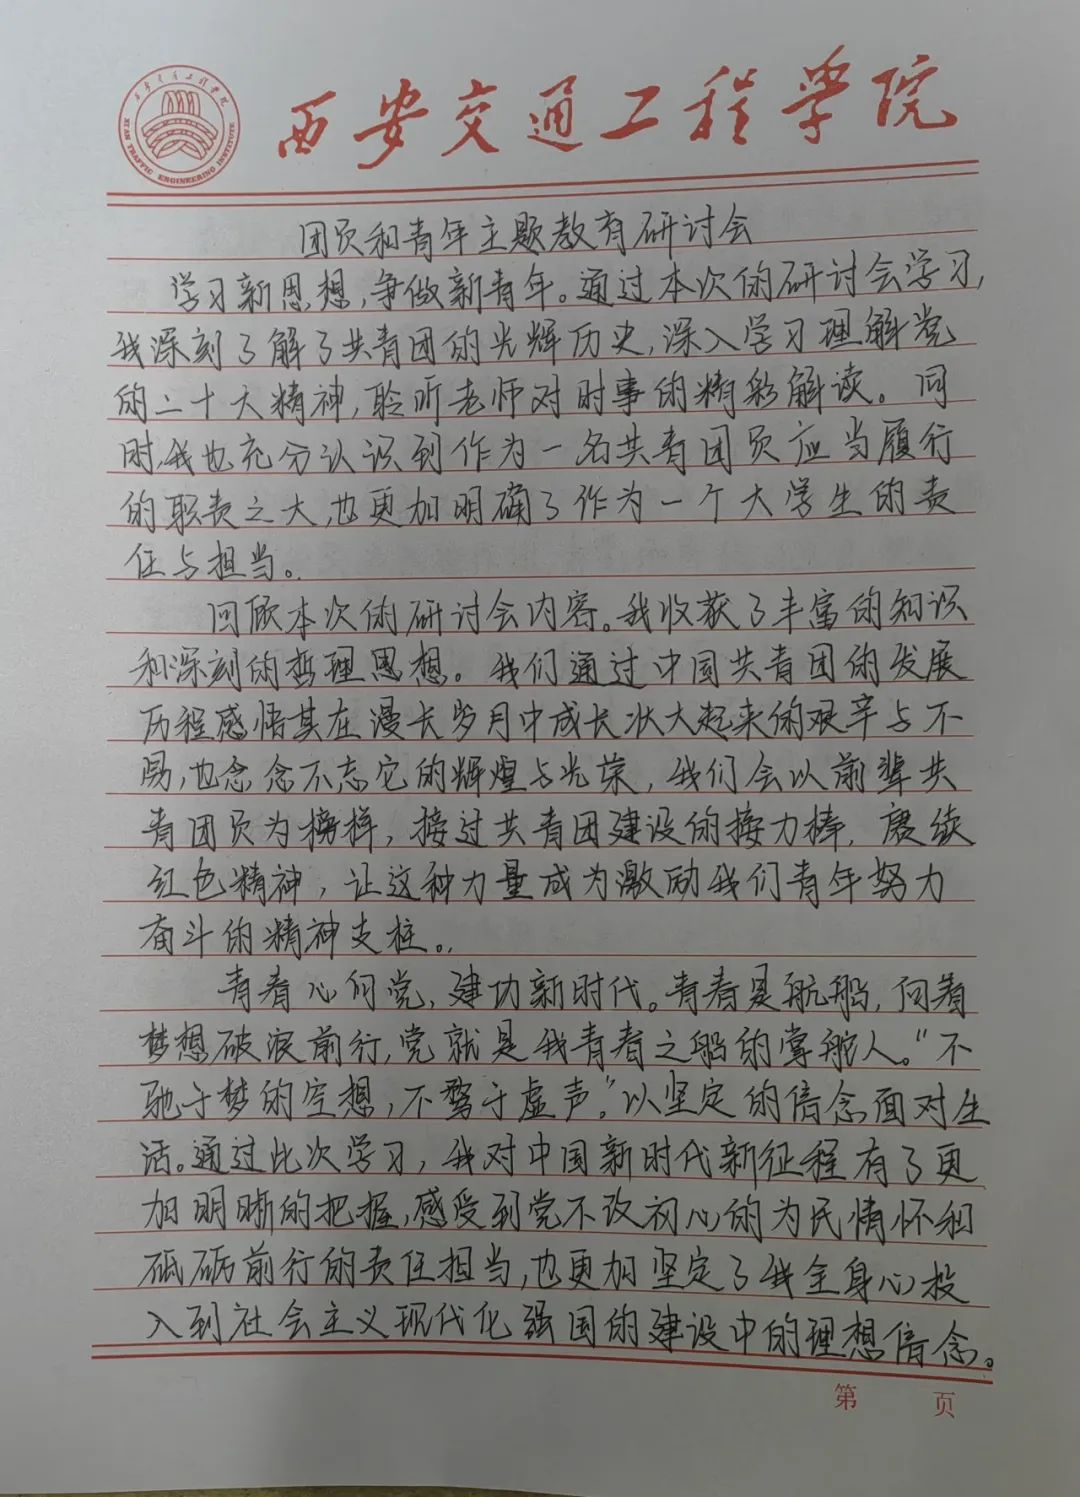 西安交通工程学院
XI'AN TRAFFIC ENGINEERING INSTITUTE
团员和青年主题教育研讨会
学习新思想,争做新青年。通过本次的研讨会学习,
我深刻了解了共青团的光辉历史,深入学习理解党
的二十大精神,聆听老师对时事的精彩解读。同
时,我也充分认识到作为一名共青团员应当履行
的职责之大,也更加明确了作为一个大学生的责
任与担当。
回顾本次的研讨会内容。我收获了丰富的知识
和深刻的哲理思想。我们通过中国共青团的发展
历程感悟其在漫长岁月中成长壮大起来的艰辛与不
易,也念念不忘它的辉煌与光荣,我们会以前辈共
青团员为榜样,接过共青团建设的接力棒,赓续
红色精神,让这种力量成为激励我们青年努力
奋斗的精神支柱。
青春心向党,建功新时代。青春是航船,向着
梦想破浪前行,党就是我青春之船的掌舵人。“不
驰于梦的空想,不骛于虚声。”以坚定的信念面对生
活。通过此次学习,我对中国新时代新征程有了更
加明晰的把握,感受到党不改初心的为民情怀和
砥砺前行的责任担当,也更加坚定了我全身心投
入到社会主义现代化强国的建设中的理想信念。
第 页